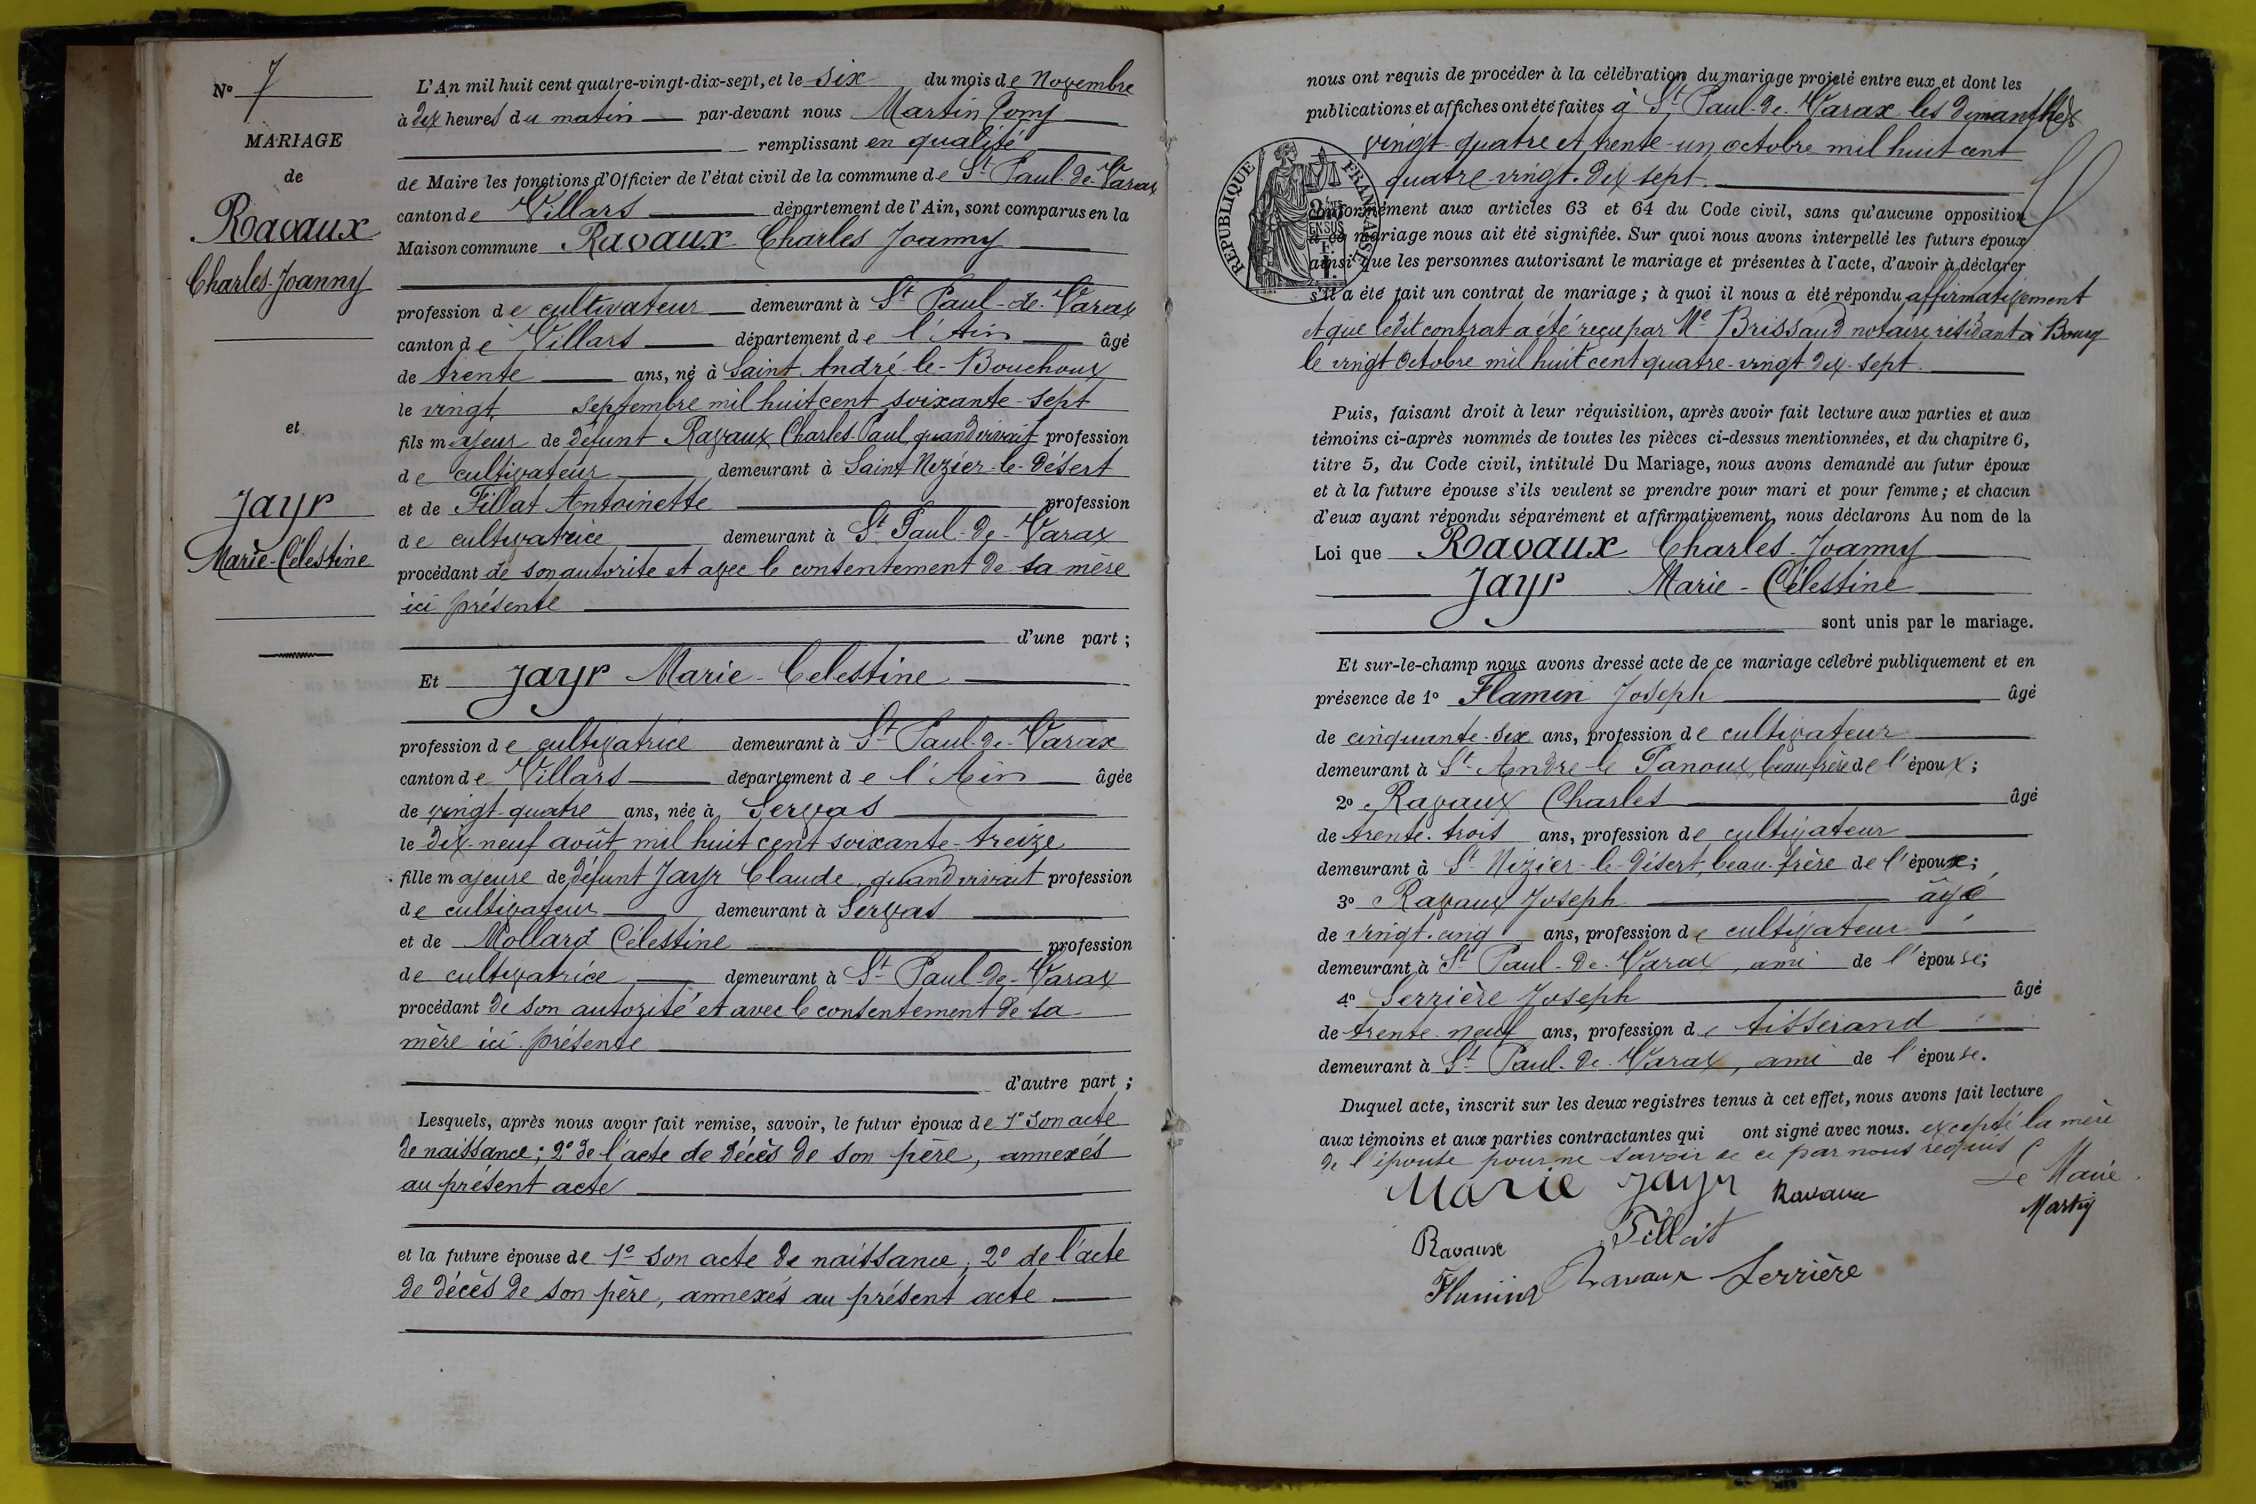 Nº 7
MARIAGE
de
Ravaux
Charles-Joanny
et
Jayr
Marie-Célestine
L'An mil huit cent quatre-vingt-dix-sept, et le six du mois de Novembre
à dix heures du matin par-devant nous Martin Tony
remplissant en qualité
de Maire les fonctions d'Officier de l'état civil de la commune de St Paul-de-Varax
canton de Villars département de l'Ain, sont comparus en la
Maison commune Ravaux Charles Joanny
profession de cultivateur demeurant à St Paul-de-Varax
canton de Villars département de l'Ain âgé
de trente ans, né à Saint André-le-Bouchoux
le vingt septembre mil huit cent soixante-sept
fils majeur de défunt Ravaux Charles Paul, quand vivait profession
de cultivateur demeurant à Saint Nizier-le-Désert
et de Fillat Antoinette profession
de cultivatrice demeurant à St Paul-de-Varax
procédant de son autorité et avec le consentement de sa mère
ici présente
d'une part ;
Et Jayr Marie-Celestine
profession de cultivatrice demeurant à St Paul-de-Varax
canton de Villars département de l'Ain âgée
de vingt-quatre ans, née à Servas
le dix-neuf août mil huit cent soixante-treize
fille majeure de défunt Jayr Claude, quand vivait profession
de cultivateur demeurant à Servas
et de Mollard Célestine profession
de cultivatrice demeurant à St Paul-de-Varax
procédant de son autorité et avec le consentement de sa
mère ici présente
d'autre part ;
Lesquels, après nous avoir fait remise, savoir, le futur époux de 1º son acte
de naissance ; 2º de l'acte de décès de son père, annexés
au présent acte
et la future épouse de 1º son acte de naissance, 2º de l'acte
de décès de son père, annexés au présent acte
nous ont requis de procéder à la célébration du mariage projeté entre eux et dont les
publications et affiches ont été faites à St Paul-de-Varax les dimanches
vingt-quatre et trente-un octobre mil huit cent
quatre vingt-dix sept
RÉPUBLIQUE FRANÇAISE
conformément aux articles 63 et 64 du Code civil, sans qu'aucune opposition
à ce mariage nous ait été signifiée. Sur quoi nous avons interpellé les futurs époux
ainsi que les personnes autorisant le mariage et présentes à l'acte, d'avoir à déclarer
s'il a été fait un contrat de mariage ; à quoi il nous a été répondu affirmativement
et que ledit contrat a été reçu par Me Brissaud notaire résidant à Bourg
le vingt octobre mil huit cent quatre-vingt dix-sept
Puis, faisant droit à leur réquisition, après avoir fait lecture aux parties et aux
témoins ci-après nommés de toutes les pièces ci-dessus mentionnées, et du chapitre 6,
titre 5, du Code civil, intitulé Du Mariage, nous avons demandé au futur époux
et à la future épouse s'ils veulent se prendre pour mari et pour femme ; et chacun
d'eux ayant répondu séparément et affirmativement, nous déclarons Au nom de la
Loi que Ravaux Charles-Joanny
Jayr Marie-Célestine
sont unis par le mariage.
Et sur-le-champ nous avons dressé acte de ce mariage célébré publiquement et en
présence de 1º Flamin Joseph âgé
de cinquante-six ans, profession de cultivateur
demeurant à St André le Panoux, beau frère de l'époux ;
2º Ravaux Charles âgé
de trente-trois ans, profession de cultivateur
demeurant à St Nizier-le-Désert, beau-frère de l'époux ;
3º Ravaux Joseph âgé
de vingt-cinq ans, profession de cultivateur
demeurant à St Paul-de-Varax, ami de l'épouse ;
4º Serrière Joseph âgé
de trente-neuf ans, profession de tisserand
demeurant à St Paul-de-Varax, ami de l'épouse.
Duquel acte, inscrit sur les deux registres tenus à cet effet, nous avons fait lecture
aux témoins et aux parties contractantes qui ont signé avec nous. excepté la mère
de l'épouse pour ne savoir de ce par nous requis
Marie Jayr Ravaux Le Maire
Martin
Ravaux Fillat
Flamin Ravaux Serrière